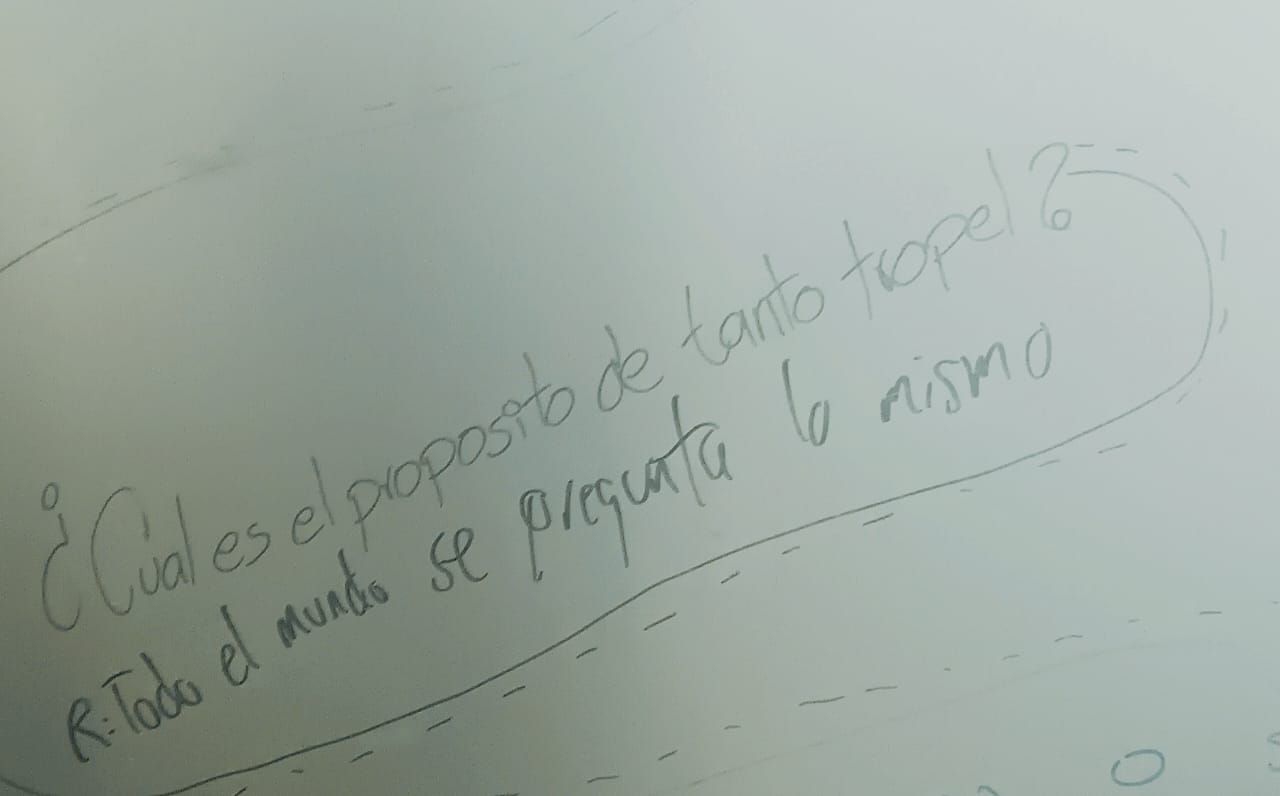 ¿Cual es el proposito de tanto tropel?
R: Todo el mundo se pregunta lo mismo